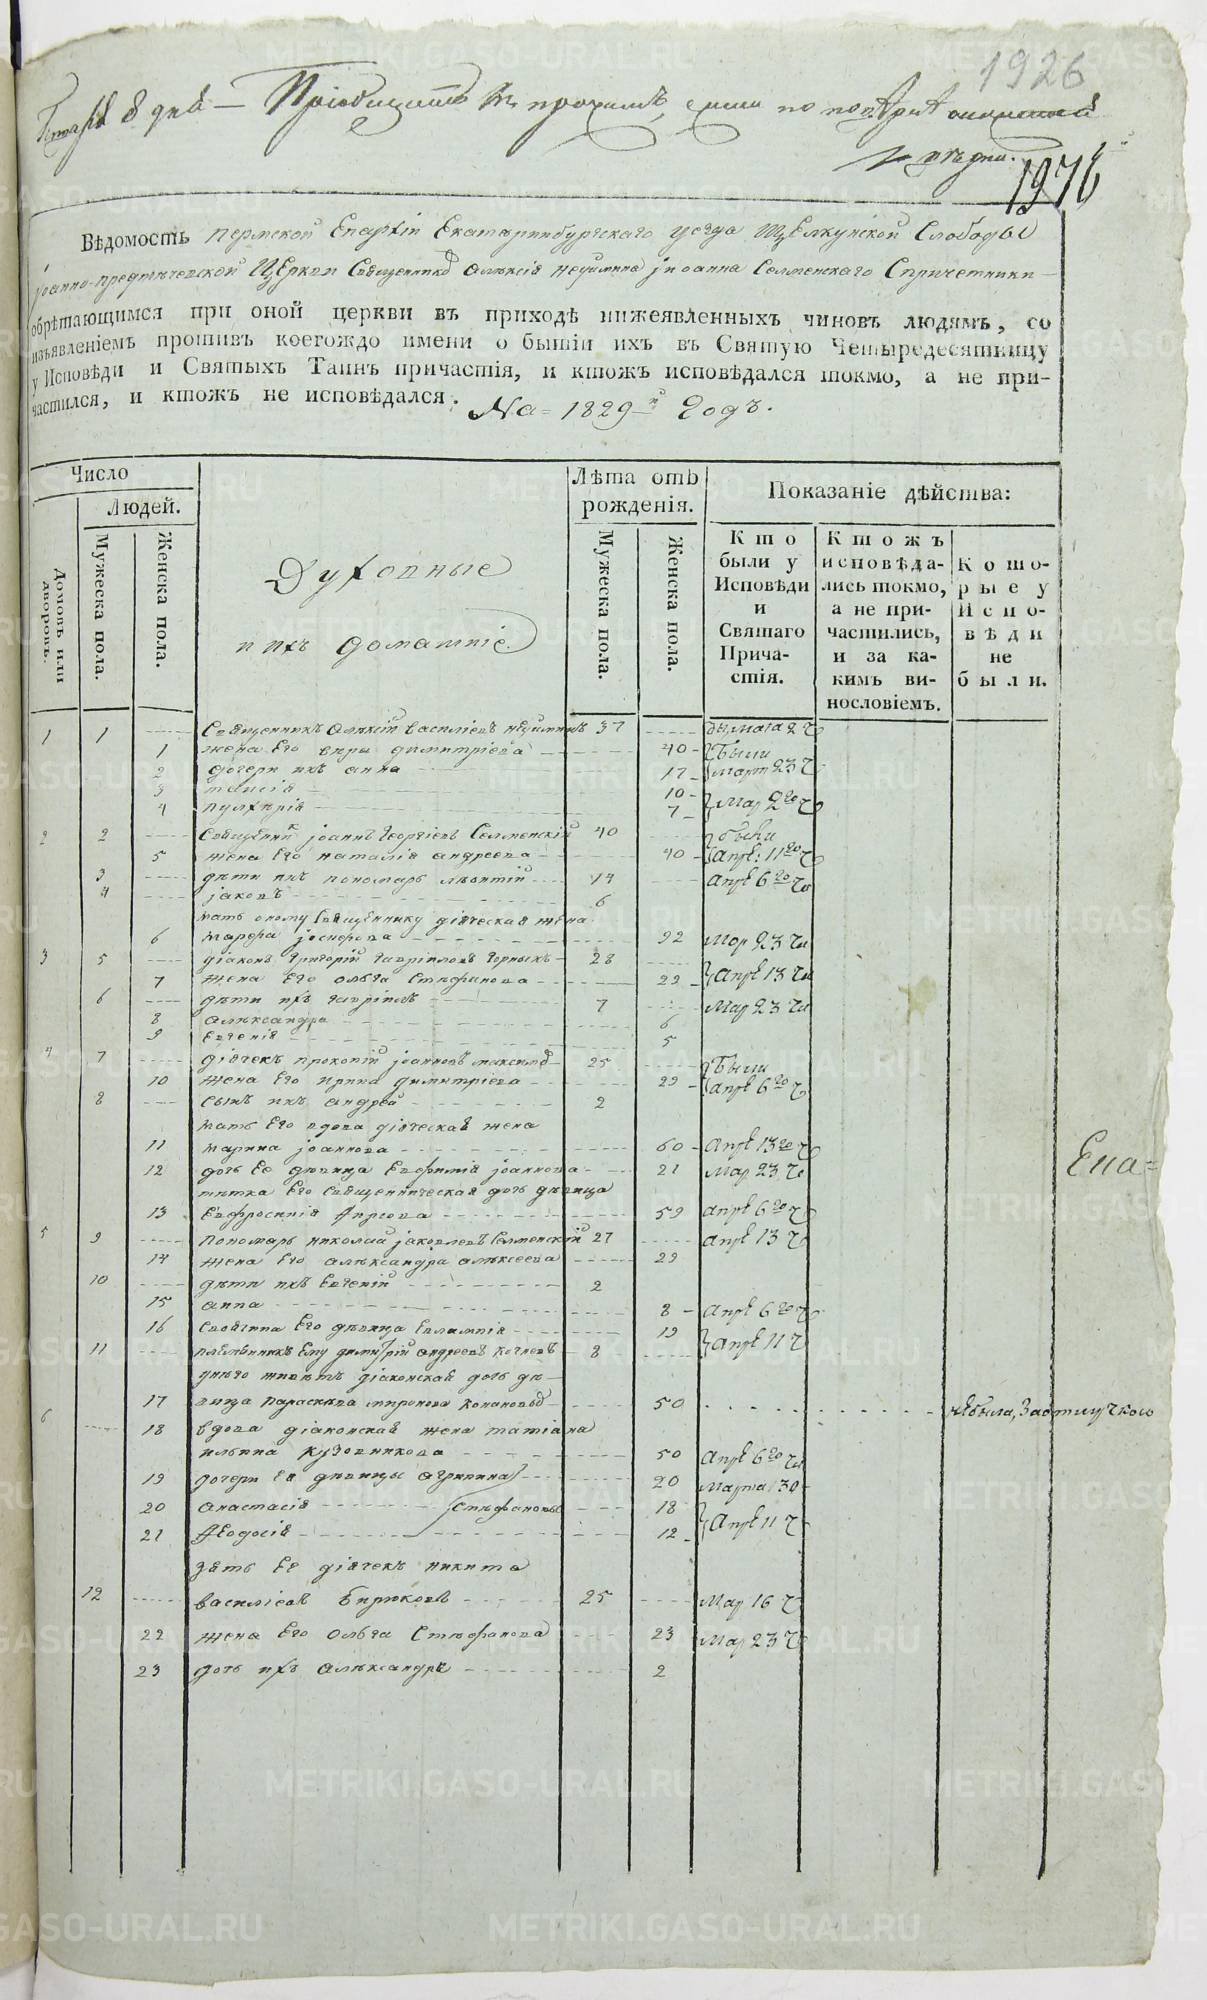 1926
8 дня — Приобщить къ прочимъ,
1976
Вѣдомость Пермской Епархіи Екатеринбургскаго уезда Щелкунской Слободы
Іоанно-предтечевской Церкви Священниковъ Алексія неуймина іоанна Селменскаго Спричетники
обрѣтающимся при оной церкви въ приходѣ нижеявленныхъ чиновъ людямъ, со
изъявленіемъ противъ коегождо имени о бытіи ихъ въ Святую Четыредесятницу
у Исповѣди и Святыхъ Таинъ причастія, и ктожъ исповѣдался токмо, а не при-
частился, и ктожъ не исповѣдался. На 1829й Годъ.
Число
Людей.
Домовъ или дворовъ.
Мужеска пола.
Женска пола.
Духовные
и ихъ домашніе
Лѣта отъ рожденія.
Мужеска пола.
Женска пола.
Показаніе дѣйства:
Кто были у Исповѣди и Святаго Прича- стія.
Ктожъ исповѣда- лись токмо, а не при- частились, и за ка- кимъ ви- нословіемъ.
Кото- рые у Испо- вѣди не были.
1 1 Священникъ Алекій василіевъ неуйминъ 37
1 жена Его вера димитріева 40 были
2 дочери ихъ анна 17 март 23 Ч
3 таисія 10
4 пулхерія 7
2 2 Священникъ іоаннъ Георгіевъ Селменскій 40 были
5 жена Его наталія андреева 40 Апре: 11го Ч
3 дети ихъ пономарь леонтій 14 Апре 6го Ч
4 іаковъ 6
мать оному Священнику діяческая жена
6 марфа іосифова 92 Мар 23 Ч
3 5 діаконъ Григорій Гавріиловъ Черныхъ 28
7 жена Его Ольга Стефанова 29 Апре 13 Ч
6 дети ихъ гавріилъ 7 Мар 23 Ч
8 александра 6
9 Евгенія 5
4 7 діячекъ прокопій іоанновъ 25 были
10 жена Его ирина димитріева 29 Апре 6го Ч
8 сынъ ихъ андрей 2
мать Его вдова діяческая жена
11 марина іоаннова 60 Апре 13го Ч
12 дочь Ее девица Евфимія іоаннова 21 Мар 23 Ч
тетка Его Священническая дочь девица
13 Евфросинія Фирсова 59 Апре 6го Ч
5 9 пономарь николай іаковлевъ Селменскій 27 Апре 13 Ч
14 жена Его александра алексеева 29
10 дети ихъ Евгеній 2
15 анна 8 Апре 6го Ч
16 своячина Его девица Евлампія 19 Апре 11 Ч
11 племянникъ Ему димитрій андреевъ 8
унего живетъ діаконская дочь де-
17 вица параскева миронова 50 небыла,
6 18 вдова діаконская жена татіана
ильина Кузовникова 50 Апре 6го Ч
19 дочери Ея девицы агрипина 20 Марта 30
20 анастасія Стефановы 18
21 Феодосія 12 Апре 11 Ч
зять Ее діячекъ никита
12 василіевъ бирюковъ 25 Мар 16 Ч
22 жена Его Ольга Стефанова 23 Мар 23 Ч
23 дочь ихъ александра 2
Ека=
METRIKI.GASO-URAL.RU